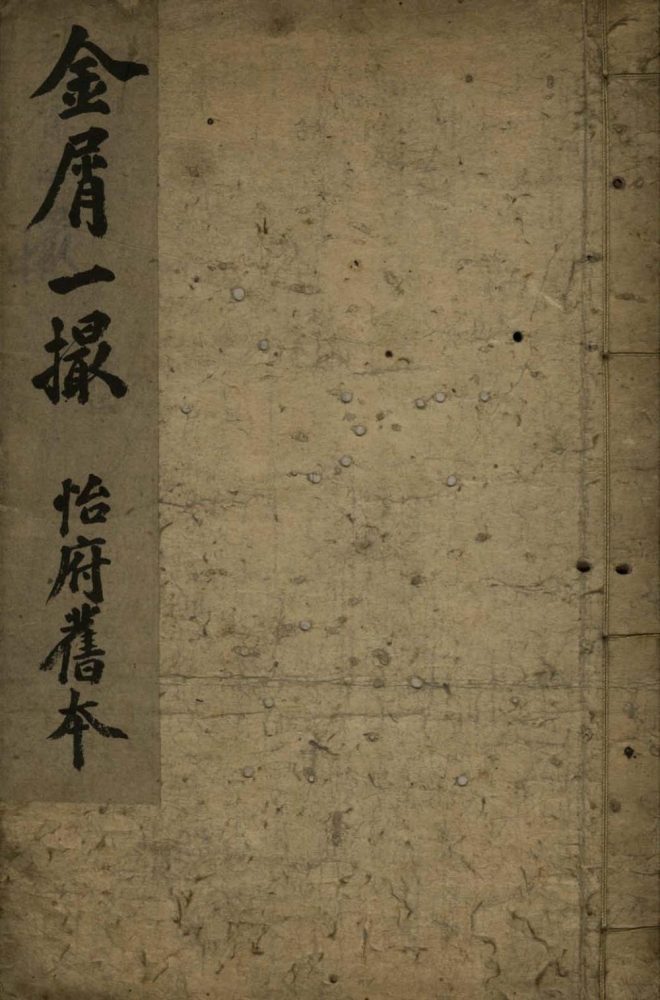 金屑一撮 怡府舊本